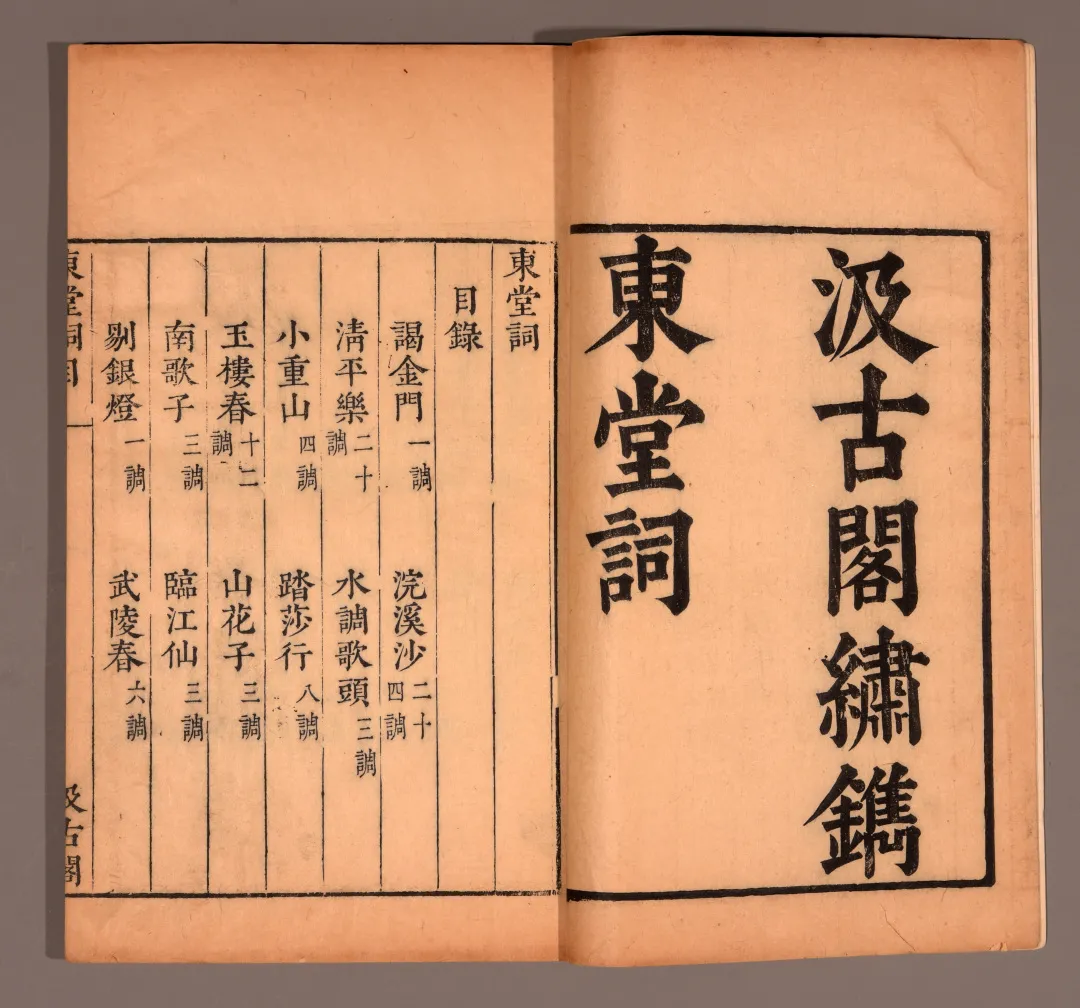 汲古閣繡鐫
東堂詞
東堂詞
目錄
謁金門一調 浣溪沙二十四調
清平樂二十調 水調歌頭三調
小重山四調 踏莎行八調
玉樓春十二調 山花子三調
南歌子三調 臨江仙三調
剔銀燈一調 武陵春六調
東堂詞目 一 汲古閣